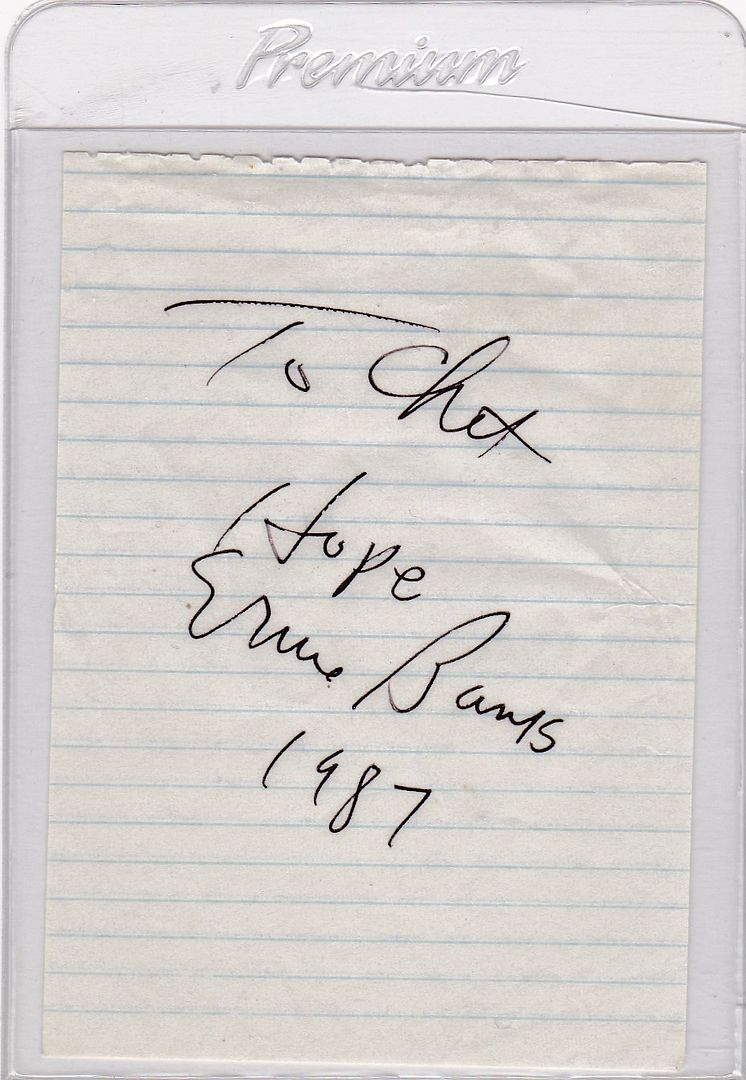 Premium
To Chet
Hope
Ernie Banks
1987